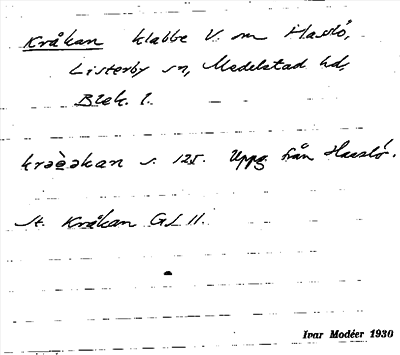 Kråkan klabbe V. om Hasslö,
Listerby sn, Medelstad hd,
Blek. l.
s. 125. Uppg. från Hasslö.
St. Kråkan GL 11.
Ivar Modéer 1930